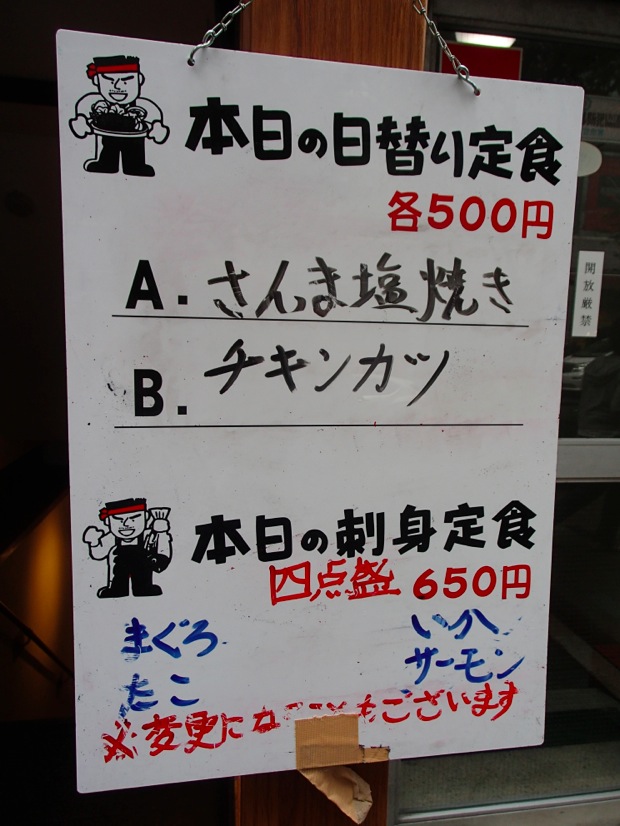 本日の日替り定食
各500円
A. さんま塩焼き
B. チキンカツ
本日の刺身定食
四点盛 650円
まぐろ いか
たこ サーモン
※変更になることもございます
開放厳禁